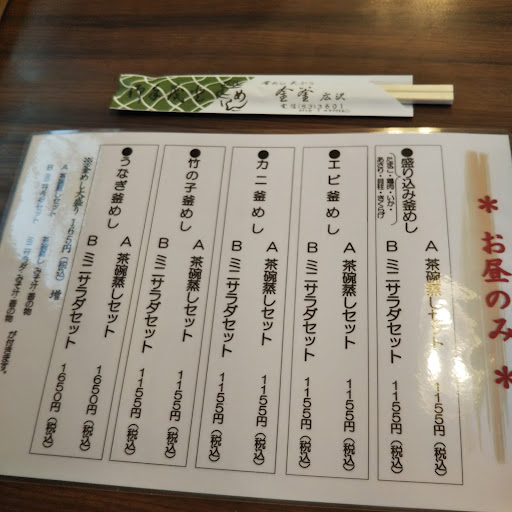 かまめし
金釜 広沢
＊お昼のみ＊
●盛り込み釜めし
A 茶碗蒸しセット 1155円(税込)
B ミニサラダセット 1155円(税込)
●エビ釜めし
A 茶碗蒸しセット 1155円(税込)
B ミニサラダセット 1155円(税込)
●カニ釜めし
A 茶碗蒸しセット 1155円(税込)
B ミニサラダセット 1155円(税込)
●竹の子釜めし
A 茶碗蒸しセット 1155円(税込)
B ミニサラダセット 1155円(税込)
●うなぎ釜めし
A 茶碗蒸しセット 1650円(税込)
B ミニサラダセット 1650円(税込)
釜めし大盛り 165円(税込) 増
A 茶碗蒸しセット
が付きます。